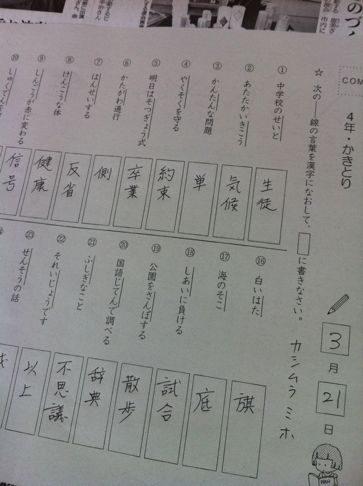 COM
4年・かきとり
☆ 次の――線の言葉を漢字になおして、□に書きなさい。
3月21日
カシムラ ミホ
① 中学校のせいと
生徒
② あたたかいきこう
気候
③ かんたんな問題
単
④ やくそくを守る
約束
⑤ 明日はそつぎょう式
卒業
⑥ かたがわ通行
側
⑦ はんせいする
反省
⑧ けんこうな体
健康
⑨ しんごうが赤に変わる
信号
⑩
⑯ 白いはた
旗
⑰ 海のそこ
底
⑱ しあいに負ける
試合
⑲ 公園をさんぽする
散歩
⑳ 国語じてんで調べる
辞典
㉑ ふしぎなこと
不思議
㉒ それいじょうです
以上
㉓ せんそうの話